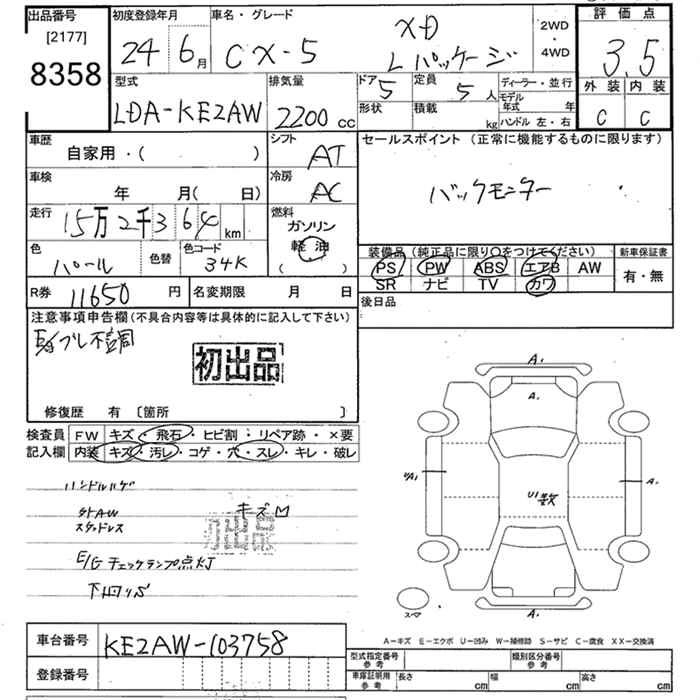 出品番号
[2177]
8358
初度登録年月
24 6月
車名・グレード
CX-5
XD
Lパッケージ
2WD
・
4WD
評価点
3.5
外装 内装
C C
型式
LDA-KE2AW
排気量
2200 cc
ドア
5
定員
5人
形状
積載
kg
ディーラー・並行
モデル
年式 年
ハンドル 左・右
車歴
自家用・( )
シフト
AT
セールスポイント (正常に機能するものに限ります)
バックモニター
車検
年 月( 日)
冷房
AC
走行
15万2千364 km
燃料
ガソリン
軽油
( )
色
パール
色替
色コード
34K
装備品 (純正品に限り○をつけてください)
PS PW ABS エアB AW
SR ナビ TV カワ
新車保証書
有・無
R券 11650 円
名変期限 月 日
後日品
注意事項申告欄(不具合内容等は具体的に記入して下さい)
初出品
修復歴 有 〔箇所 〕
検査員
記入欄
FW キズ・飛石・ヒビ割・リペア跡・×要
内装 キズ・汚レ・コゲ・穴・スレ・キレ・破レ
ハンドルハゲ
外AW キズ
スタッドレス
E/Gチェックランプ点灯
下回りサビ
A1
A.
U/A1
A.
U1 数
A.
スマ
車台番号 KE2AW-103758
登録番号
A-キズ E-エクボ U-凹み W-補修跡 S-サビ C-腐食 XX-交換済
型式指定番号
参考
類別区分番号
参考
車庫証明用
参考
長さ cm 幅 cm 高さ cm